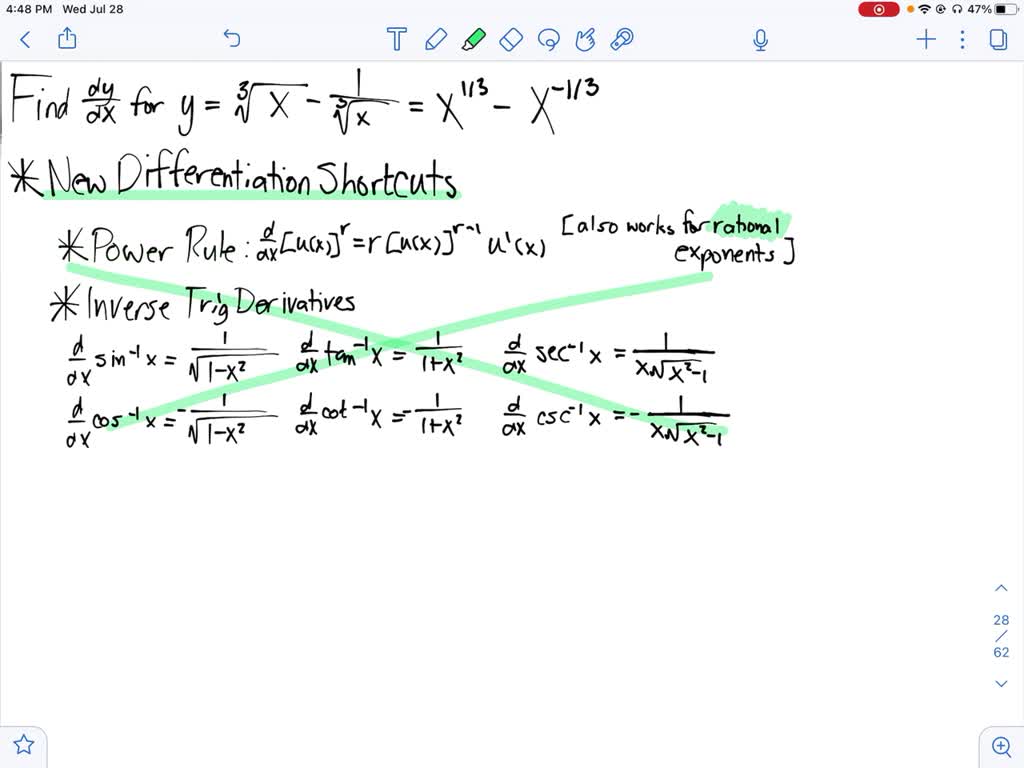 4:48 PM Wed Jul 28
47%
Find dy/dx for y = ∛x - 1/∛x = x^1/3 - x^-1/3
* New Differentiation Shortcuts
* Power Rule: d/dx [u(x)]^r = r [u(x)]^r-1 u'(x) [also works for rational
exponents]
* Inverse Trig Derivatives
d/dx sin^-1 x = 1/√1-x² d/dx tan^-1 x = 1/1+x² d/dx sec^-1 x = 1/x√x²-1
d/dx cos^-1 x = -1/√1-x² d/dx cot^-1 x = -1/1+x² d/dx csc^-1 x = -1/x√x²-1
28
/
62